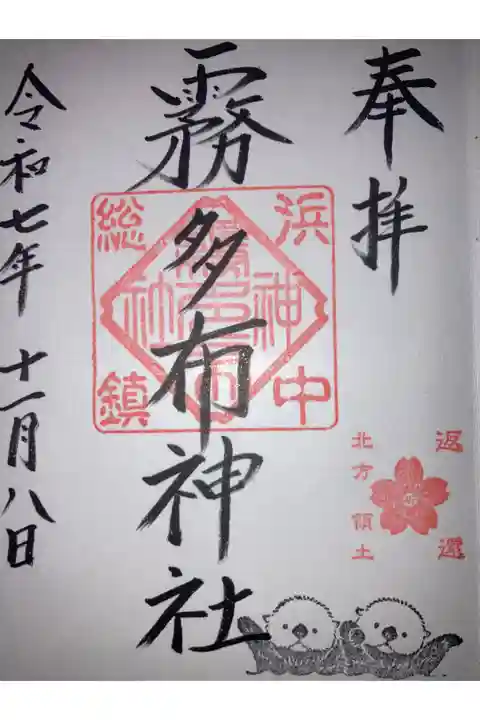 奉拝
霧多布神社
令和七年 十一月八日
浜中
総鎮
霧多布
神社
返還
北方領土